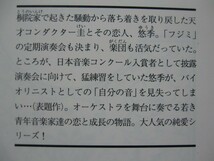 桐院家で起きた騒動から落ち着きを取り戻した天
才コンダクター圭とその恋人、悠季。「フジミ」
の定期演奏会も決まり、楽団も活気だっていた。
ところが、日本音楽コンクール入賞者として披露
演奏会に向けて、猛練習をしていた悠季が、バイ
オリニストとしての「自分の音」を見失ってしま
い…(表題作)。オーケストラを舞台に奏でる若き
青年音楽家達の恋と成長の物語。大人気の純愛シ
リーズ!